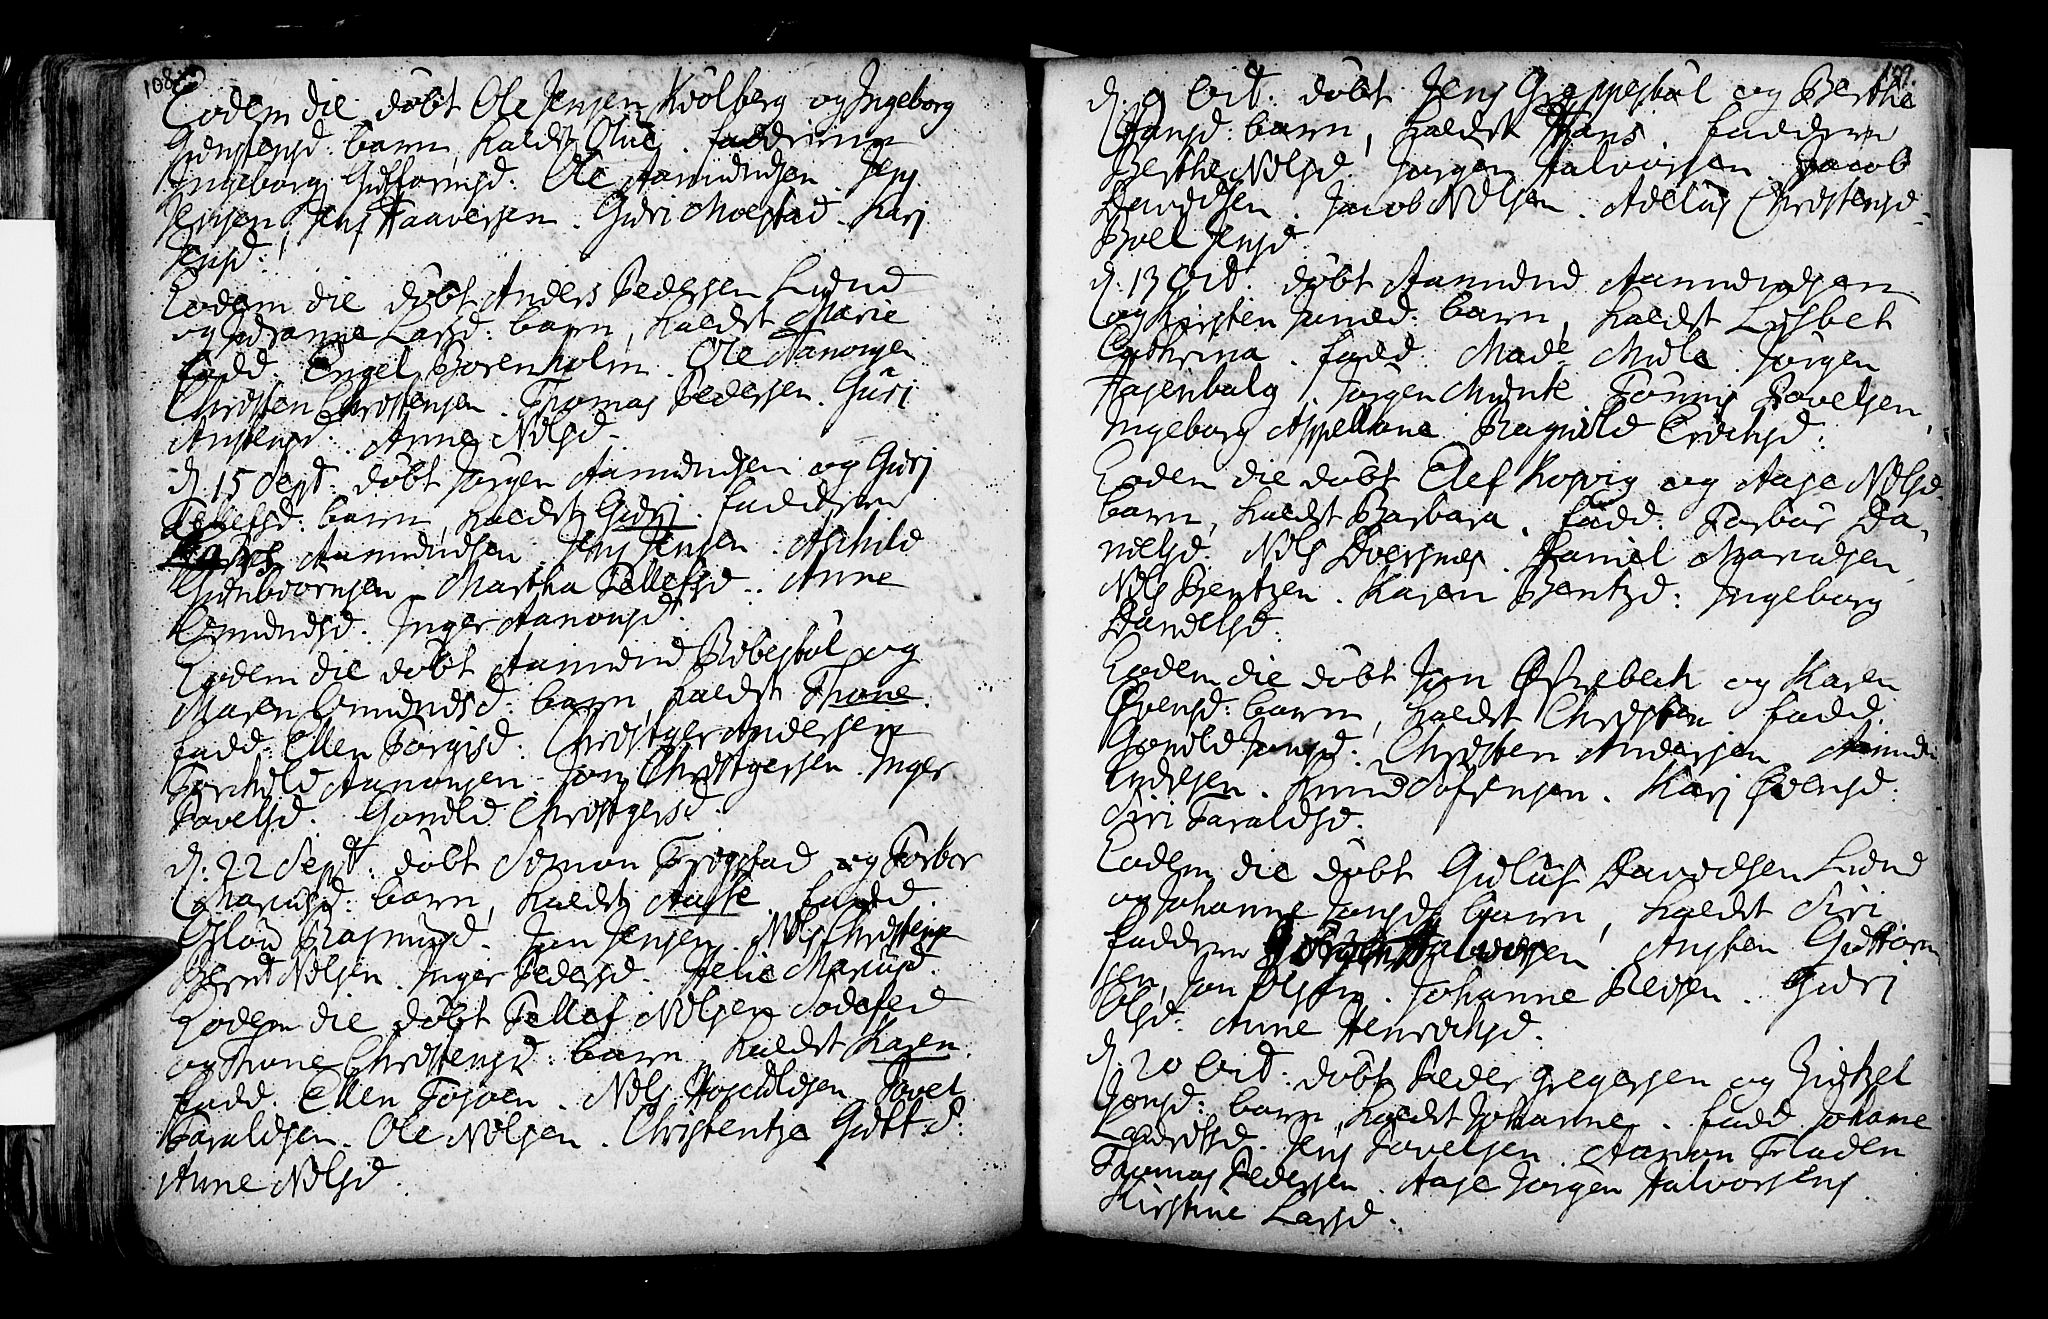 108.
Eodem die döbt Ole Jensen Kiölberg og Ingeborg
barn, kaldt Oluf. fadderne
Ingeborg Guttormsd: Ole Aamundsen. Jens
Jensen, Jens Haaversen. Guri Moestad. Kari
Jensd:
Eodem die döbt Anders Pedersen Lund
og Susanna Larsd: barn, kaldt Marie
fadd: Engel Borenholm. Ole Aanonsen
Christen Christensen. Thomas Pedersen. Guri
Anstensd: Anne Nilsd.
d. 15 Sept: döbt Jörgen Aamundsen og Guri
Tellefsd: barn, kaldt Guri. fadderne
Aamundsen. Jens Jensen. Aschild
Gunbiörnsen. Martha Tellefsd. Anne
Omundsd. Inger Aanonsd.
Eodem die döbt Aamund Ribesböl og
Maren Omundsd: barn, kaldt Thone.
fadd: Ellen Börgisd. Christger Andersen
Torkild Aanonsen. Jon Christgersen. Inger
Povelsd. Gondle Christgersd.
d. 22 Sept: döbt Simon Frögstad og Torbor
Mariusd: barn, kaldt Aasse. fadd.
Asloù Rasmusd. Jon Jensen. Nils Christens
Bernt Nilsen. Inger Pedersd. Helie Mariusd.
Eodem die döbt Tellef Nilsen Sodefed
og Thone Christensd: barn, kaldt Karen.
fadd. Ellen Fosöen. Nils Povel
Taraldsen. Ole Nilsen. Christentze Gutt.d:
Anne Nilsd.
109.
d. 9 Oct: döbt Jens Greppesböl og Berthe
Hansd: barn, kaldt Hans. fadderne
Berthe Nilsd. Jörgen Halvorsen. Jacob
Davidsen. Jacob Nilsen. Adelus Christensd.
Boel Jensd.
d. 13 Oct: döbt Aamund Aamundsen
og Kirsten barn, kaldt Lisbet
Cathrina. fadd. Made Mule. Jörgen
Hasenbalg. Jörgen Munte. Tönnis Povelsen,
Ingeborg Appellone. Ragnild Erichsd:
Eodem die döbt Elef Kosvig og Aase Nilsd.
barn, kaldt Barbara. fadd. Torbor Da-
nielsd. Nils Dversnes. Daniel Mariusen,
Nils Bentzen. Karen Bentzd: Ingeborg
Danielsd.
Eodem die döbt Jon Østrebech og Karen
Evensd: barn, kaldt Christen fadd.
Gondle Jonsd: Christen Andersen Aamund
Endresen. Knud Sofrensen. Kari Evensd:
Siri Taraldsd.
Eodem die döbt Gulluf Davidsen Lund
og Johanne Jonsd: barn, kaldt Siri
faddern Jörgen Halvorsen Ansten Guttorm
sen, Jon Olsen. Johanne Reiersen. Guri
Olsd: Anne Henrichsd.
d. 20 Oct: döbt Peder Gregersen og Giertzel
Jonsd: barn, kaldt Johanne. fadd. Johanne
Lauritsd. Jens Povelsen. Aanon Fladen
Thomas Pedersen. Aase Jörgen Halvorsens.
Kirstine Larsd.